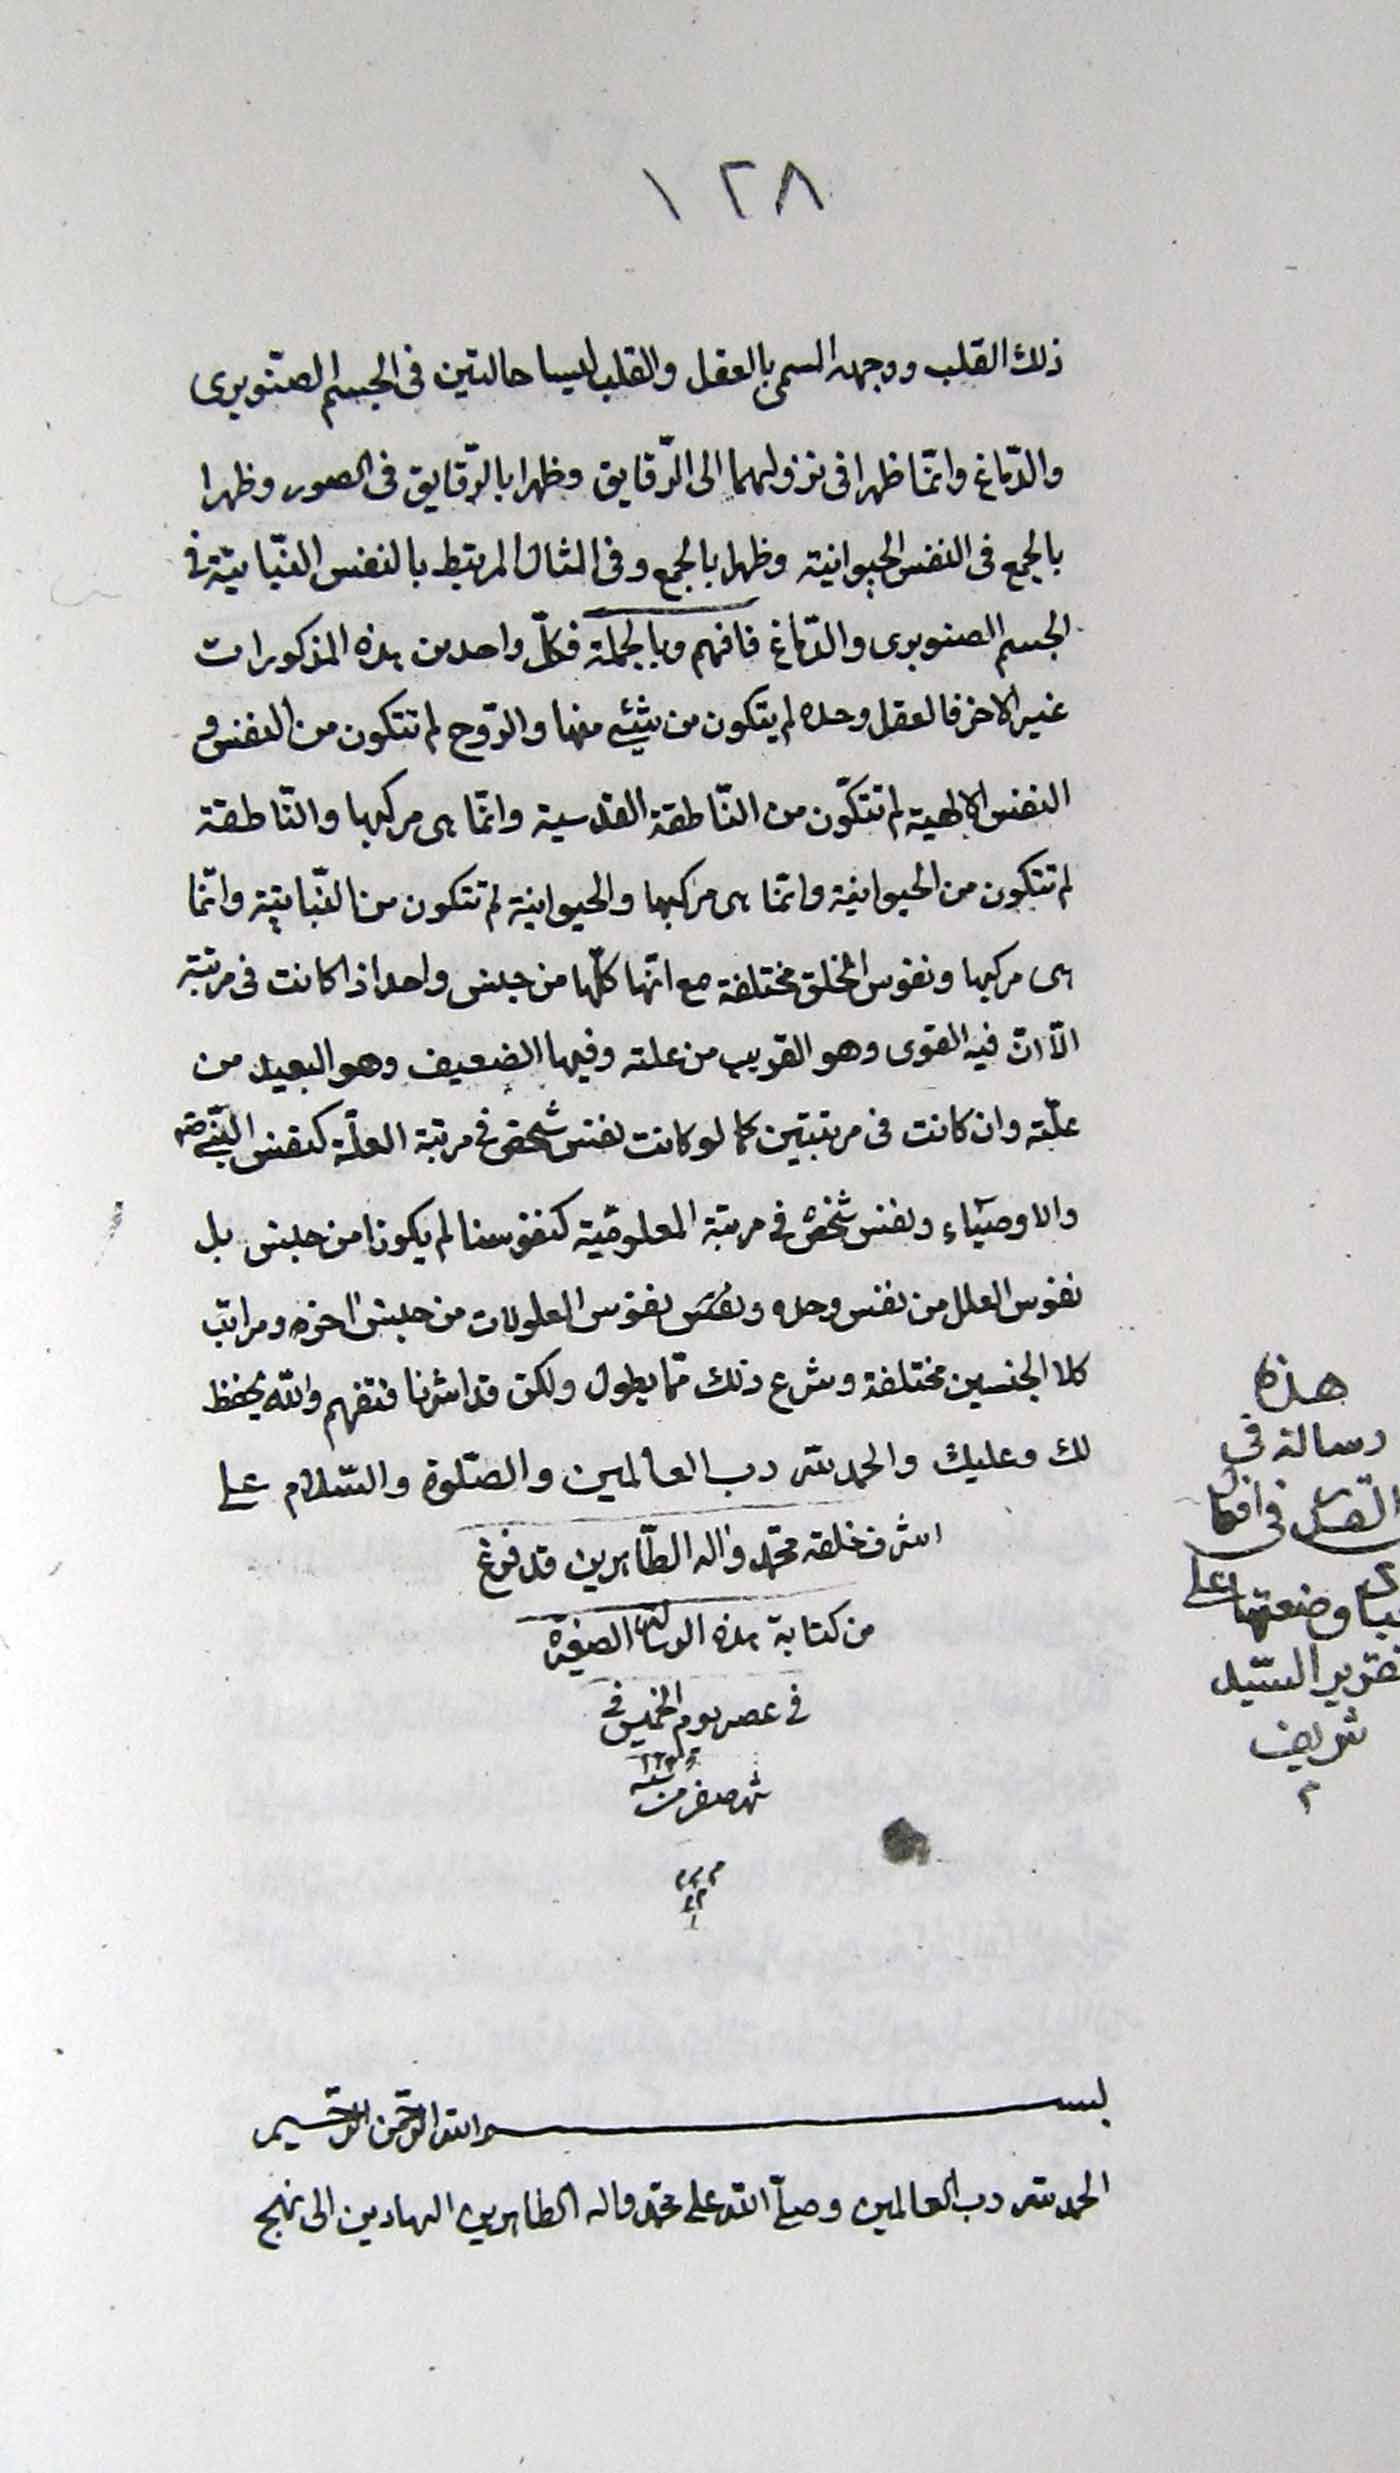 ١٢٨
ذلك القلب ووجهه المسمى بالعقل والقلب ليسا حالتين فى الجسم الصنوبرى
والدّماغ وانّما ظهرا فى نزولهما الى الرّقايق وظهرا بالرّقايق فى الصور وظهرا
بالجمع فى النفس الحيوانية وظهرا بالجمع وفى المثال المرتبط بالنفس النّباتيّة فى
الجسم الصنوبرى والدّماغ فافهم وبالجملة فكلّ واحد من هذه المذكورات
غير الاخر فالعقل وحده لم يتكون من شيئ منها والرّوح لم تتكون من النفس و
النفس الالهية لم تتكوّن من النّاطقة القدسية وانّما هى مركبها والنّاطقة
لم تتكون من الحيوانية وانّما هى مركبها والحيوانية لم تتكون من النّباتية وانّما
هى مركبها ونفوس الخلق مختلفة مع انّها كلّها من جنس واحد اذا كانت فى مرتبة
الّا انّ فيه القوى وهو القريب من علته وفيها الضعيف وهو البعيد من
علّته وان كانت فى مرتبتين كما لو كانت نفس شخص فى مرتبة العلّة كنفس النّبى ص
والاوصيآء ونفس شخص فى مرتبة المعلوليّة كنفوسنا لم يكونا من جنس بل
نفوس العلل من نفس وحده ونفس نفوس المعلولات من جنس اخره ومراتب
كلا الجنسين مختلفة وشرع ذلك ممّا يطول ولكن قد اشرنا فتفهم والله يحفظ
لك وعليك والحمد لله رب العالمين والصّلوة والسّلام على
اشرف خلقه محمّد واله الطّاهرين قد فرغ
من كتابة هذه الرسالة الصغيرة
فى عصر يوم الخميس فى
شهر صفر من سنه
م م م
بسم الله الرّحمن الرّحيم
الحمد لله رب العالمين وصلّى الله على محمّد واله الطاهرين الهادين الى نهج
هذه
رسالة فى
القدر فى افعال
وضعتها على
تقرير السّيد
شريف
م